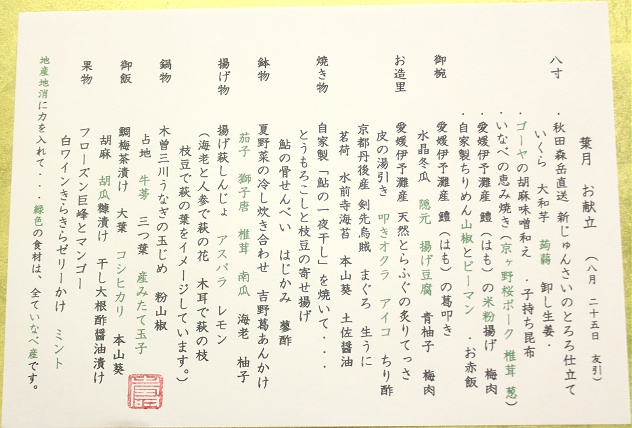 葉月　お献立　（八月　二十五日　友引）
八寸　・秋田森岳直送　新じゅんさいのとろろ仕立て
いくら　大和芋　蒟蒻　卸し生姜・
・ゴーヤの胡麻味噌和え　・子持ち昆布
・いなべの恵み焼き（京ヶ野桜ポーク　椎茸　葱）
・愛媛伊予灘産　鱧（はも）の米粉揚げ　梅肉
・自家製ちりめん山椒とピーマン　・お赤飯
御椀　愛媛伊予灘産　鱧（はも）の葛叩き
水晶冬瓜　隠元　揚げ豆腐　青柚子　梅肉
お造里　愛媛伊予灘産　天然とらふぐの炙りてっさ
皮の湯引き　叩きオクラ　アイコ　ちり酢
京都丹後産　剣先烏賊　まぐろ　生うに
茗荷　水前寺海苔　本山葵　土佐醤油
焼き物　自家製「鮎の一夜干し」を焼いて・・・
とうもろこしと枝豆の寄せ揚げ
鮎の骨せんべい　はじかみ　蓼酢
鉢物　夏野菜の冷し炊き合わせ　吉野葛あんかけ
茄子　獅子唐　椎茸　南瓜　海老　柚子
揚げ物　揚げ萩しんじょ　アスパラ　レモン
（海老と人参で萩の花　木耳で萩の枝
枝豆で萩の葉をイメージしています。）
鍋物　木曽三川うなぎの玉じめ　粉山椒
占地　牛蒡　三つ葉　産みたて玉子
御飯　鯛梅茶漬け　大葉　コシヒカリ　本山葵
胡麻　胡瓜糠漬け　干し大根酢醤油漬け
果物　フローズン巨峰とマンゴー
白ワインきらきらゼリーかけ　ミント
地産地消に力を入れて・・・緑色の食材は、全ていなべ産です。